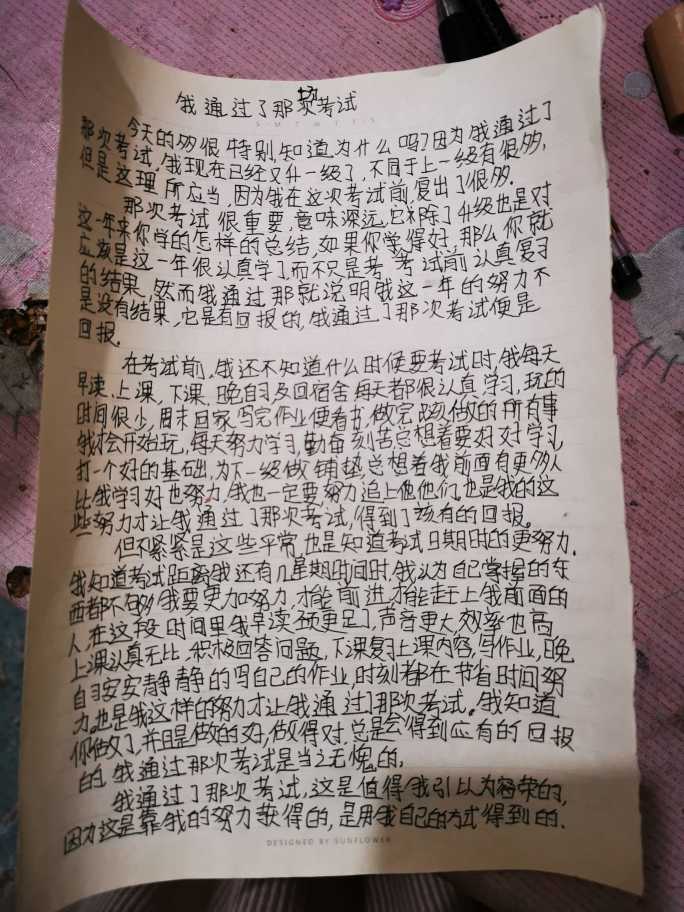 我通过了那次考试
今天的我很特别,知道为什么吗?因为我通过了
那次考试,我现在已经又升一级了,不同于上一级有很多,
但是这理所应当,因为我在这次考试前,付出了很多.
那次考试很重要,意味深远,它不除了升级也是对
这一年来你学的怎样的总结,如果你学得好,那么你就
应该是这一年很认真学了而不只是考考试前认真复习
的结果,然而我通过那就说明我这一年的努力不
是没有结果,它是有回报的,我通过了那次考试便是
回报.
在考试前,我还不知道什么时候要考试时,我每天
早读、上课、下课、晚自习及回宿舍每天都很认真学习,玩的
时间很少,周末回家写完作业便看书,做完该做的所有事
我才会开始玩,每天努力学习,勤奋刻苦总想着要好好学习,
打一个好的基础,为下一级做铺垫,总想着我前面有更多人
比我学习好也努力,我也一定要努力追上他他们,也是我的这
些努力才让我通过了那次考试,得到了该有的回报。
但不紧紧是这些平常,也是知道考试日期时的更努力.
我知道考试距离我还有几星期时间时,我认为自己掌握的东
西都不够我要更加努力,才能前进,才能赶上我前面的
人,在这段时间里我早读颂更足了,声音更大,效率也高
上课认真无比,积极回答问题,下课复习上课内容,写作业,晚
自习安安静静的写自己的作业,时刻都在节省时间努
力。也是我这样的努力才让我通过了那次考试。我知道
你做了,并且是做的好,做得对,总是会得到应有的回报
的,我通过那次考试是当之无愧的,
我通过了那次考试,这是值得我引以为容荣的,
因为这是靠我的努力获得的,是用我自己的方式得到的.
DESIGNED BY SUNFLOWER